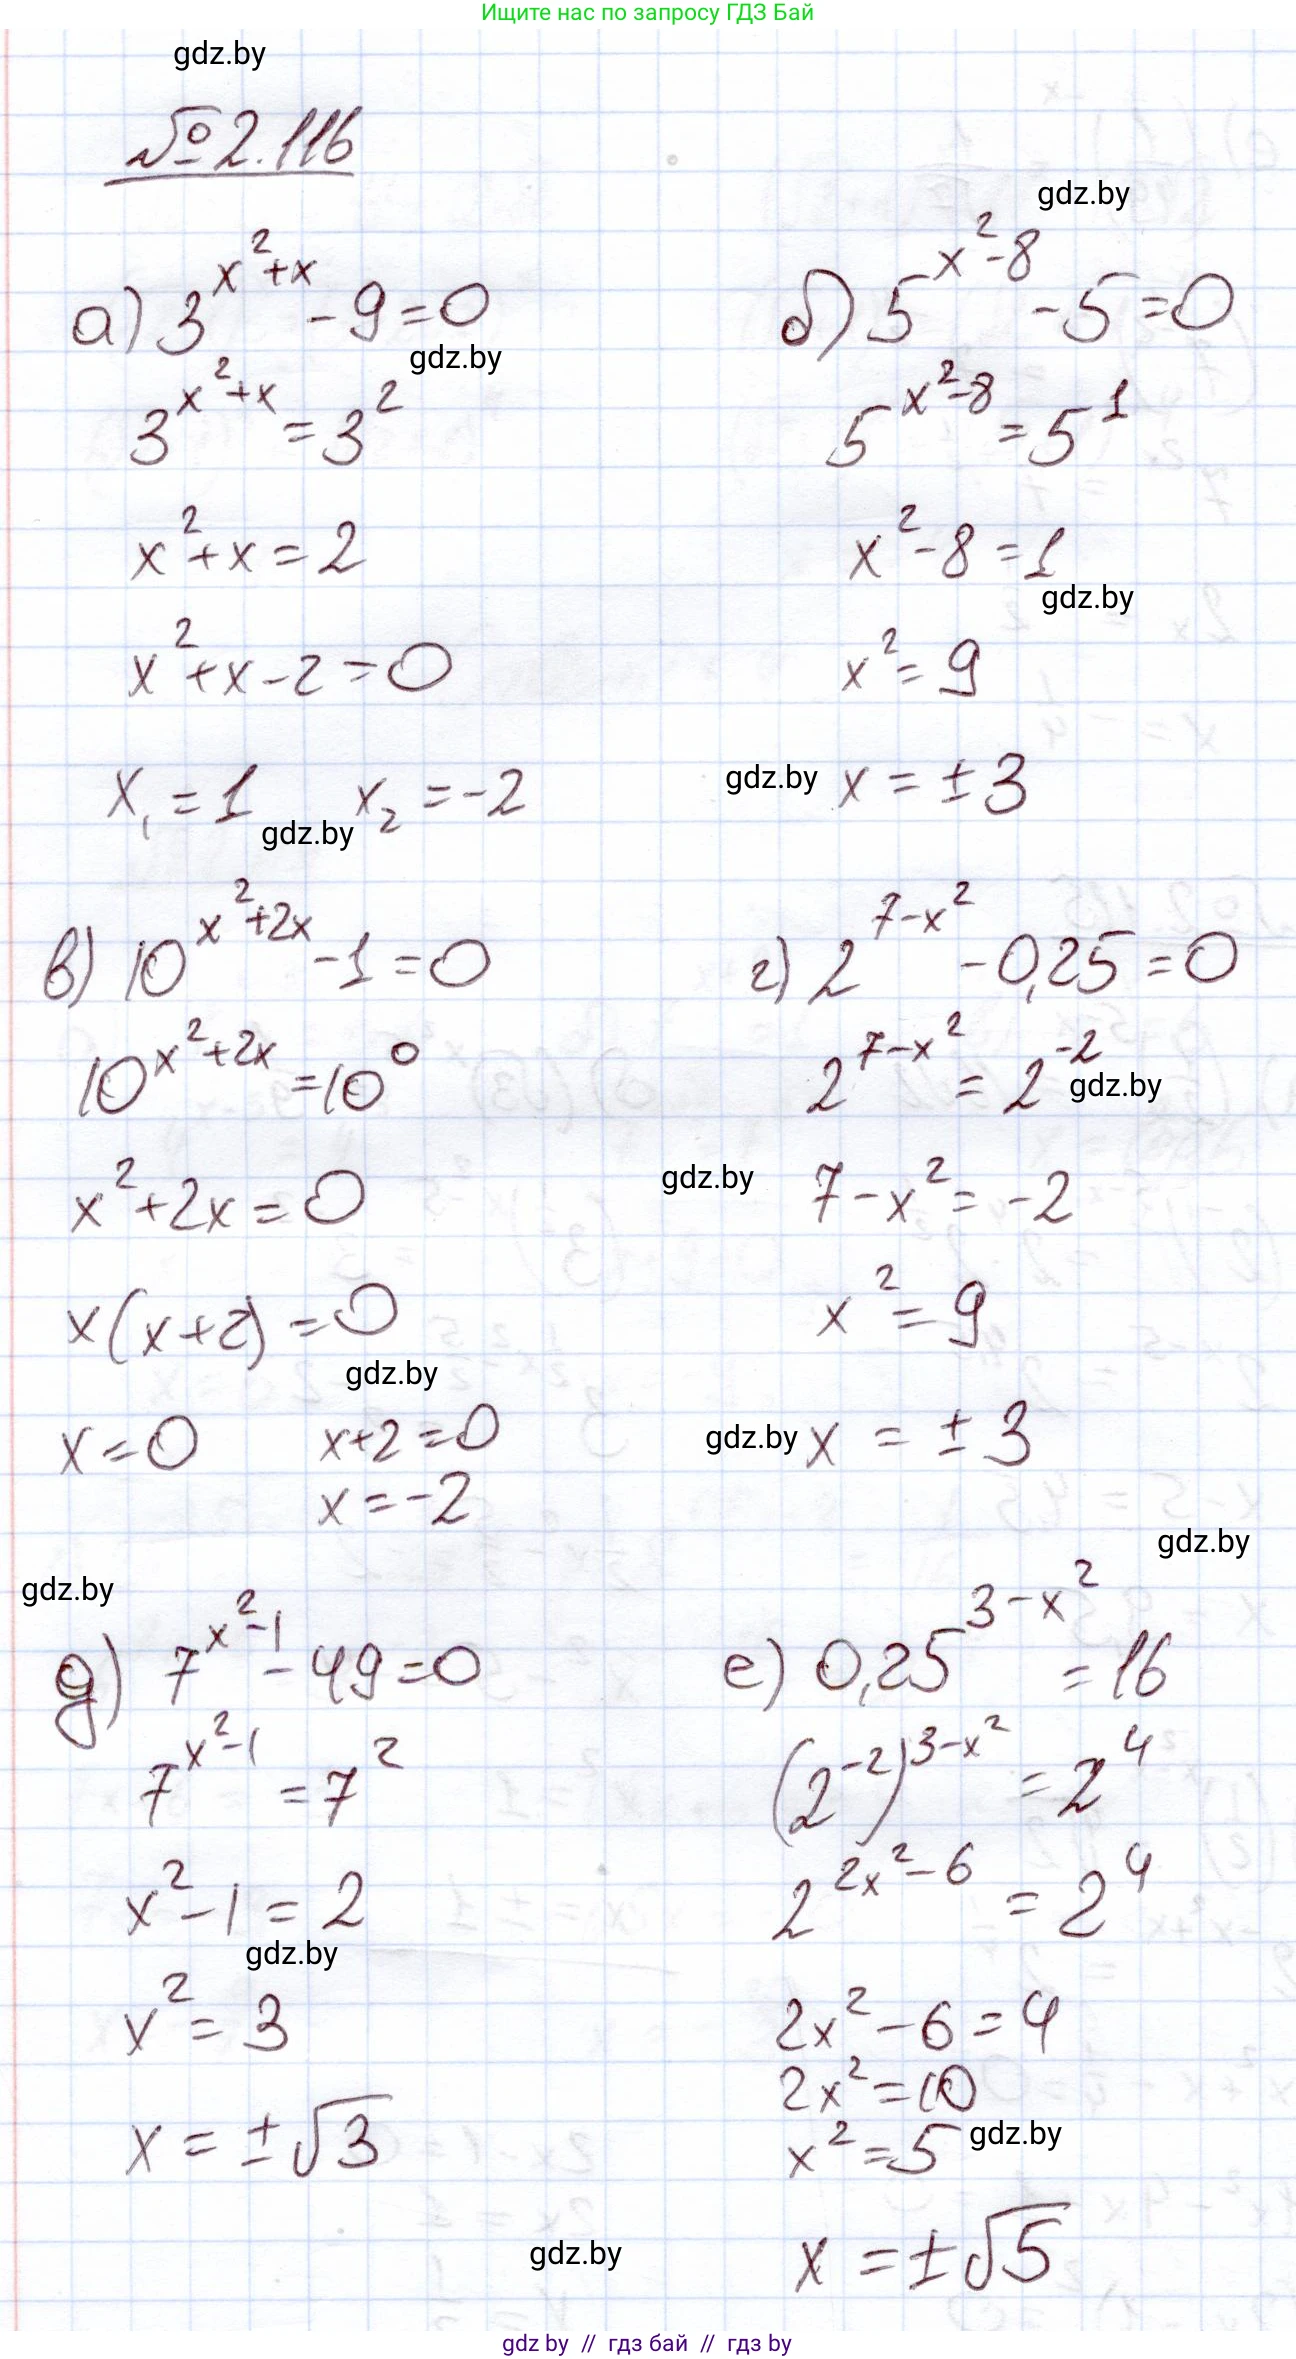 Ищите нас по запросу ГДЗ Бай
gdz.by
№ 2.116
gdz.by
а) 3^(x²+x) - 9 = 0
gdz.by
3^(x²+x) = 3²
x² + x = 2
x² + x - 2 = 0
x₁ = 1 x₂ = -2
gdz.by
б) 5^(x²-8) - 5 = 0
5^(x²-8) = 5¹
x² - 8 = 1
gdz.by
x² = 9
gdz.by x = ± 3
в) 10^(x²+2x) - 1 = 0
10^(x²+2x) = 10⁰
x² + 2x = 0
x(x+2) = 0
gdz.by
x = 0 x+2 = 0
x = -2
г) 2^(7-x²) - 0,25 = 0
2^(7-x²) = 2⁻²
gdz.by
gdz.by 7 - x² = -2
x² = 9
gdz.by x = ± 3
gdz.by
gdz.by
д) 7^(x²-1) - 49 = 0
7^(x²-1) = 7²
x² - 1 = 2
gdz.by
x² = 3
x = ±√3
е) 0,25^(3-x²) = 16
(2⁻²)^(3-x²) = 2⁴
2^(2x²-6) = 2⁴
2x² - 6 = 4
2x² = 10
x² = 5 gdz.by
gdz.by
x = ±√5
gdz by // гдз бай // гдз by